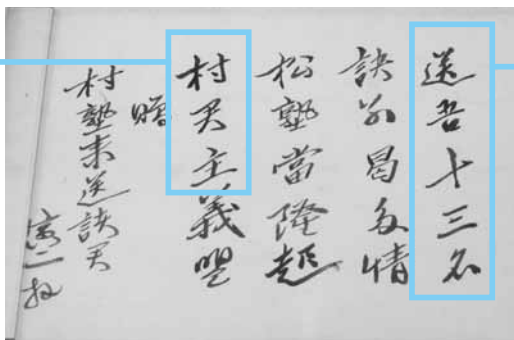 送吾十三名
訣別曷多情
松塾當隆起
村君主義盟
贈
村塾来送訣君
寅二拝